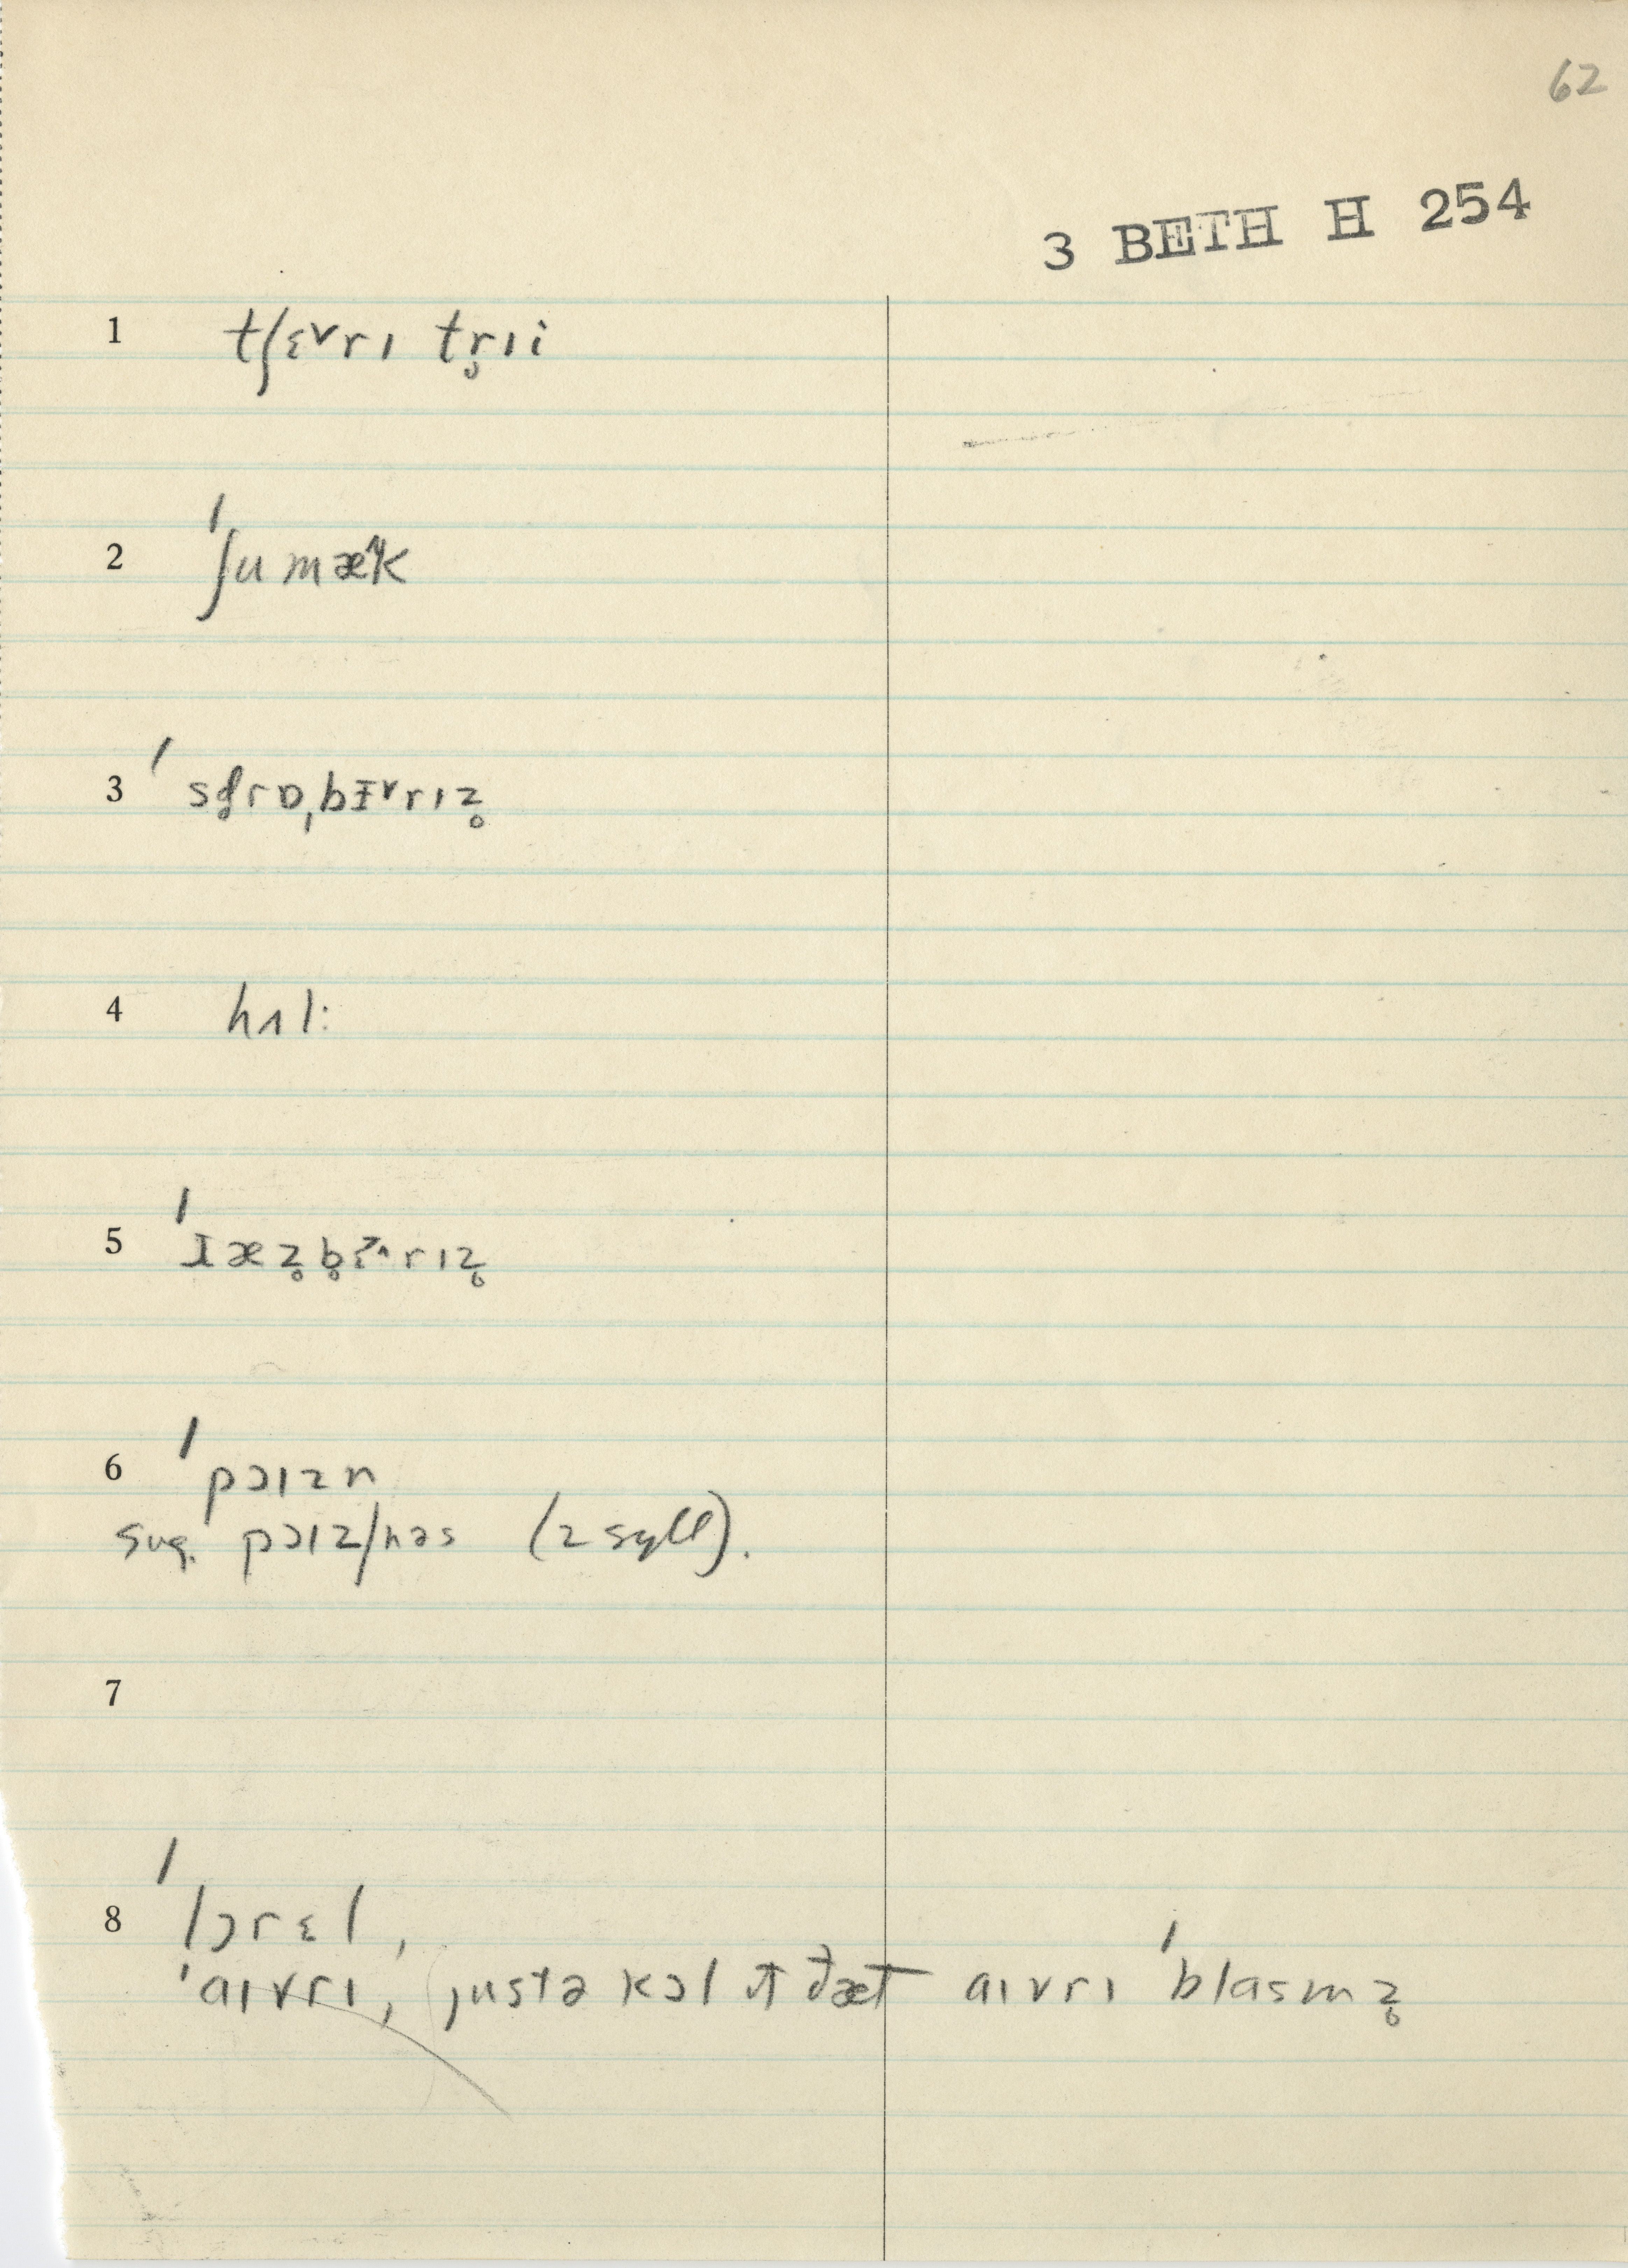 62
3 BETH H 254
1 tʃɛ˅rɪ tr̥ɪi
2 ˈʃumæᶣk
3 ˈsd̥rɒˌbɪ˅rɪz̥
4 hʌl:
5 ˈræz̥b̥ɛ^rɪz̥
6 ˈpɔɪzn
sug. pɔɪz/nəs (2 syll).
7
8 ˈlɔrɛl,
ˈaɪvrɪ, justə kɔl ɪt ðæt aɪvrɪ ˈblasmz̥